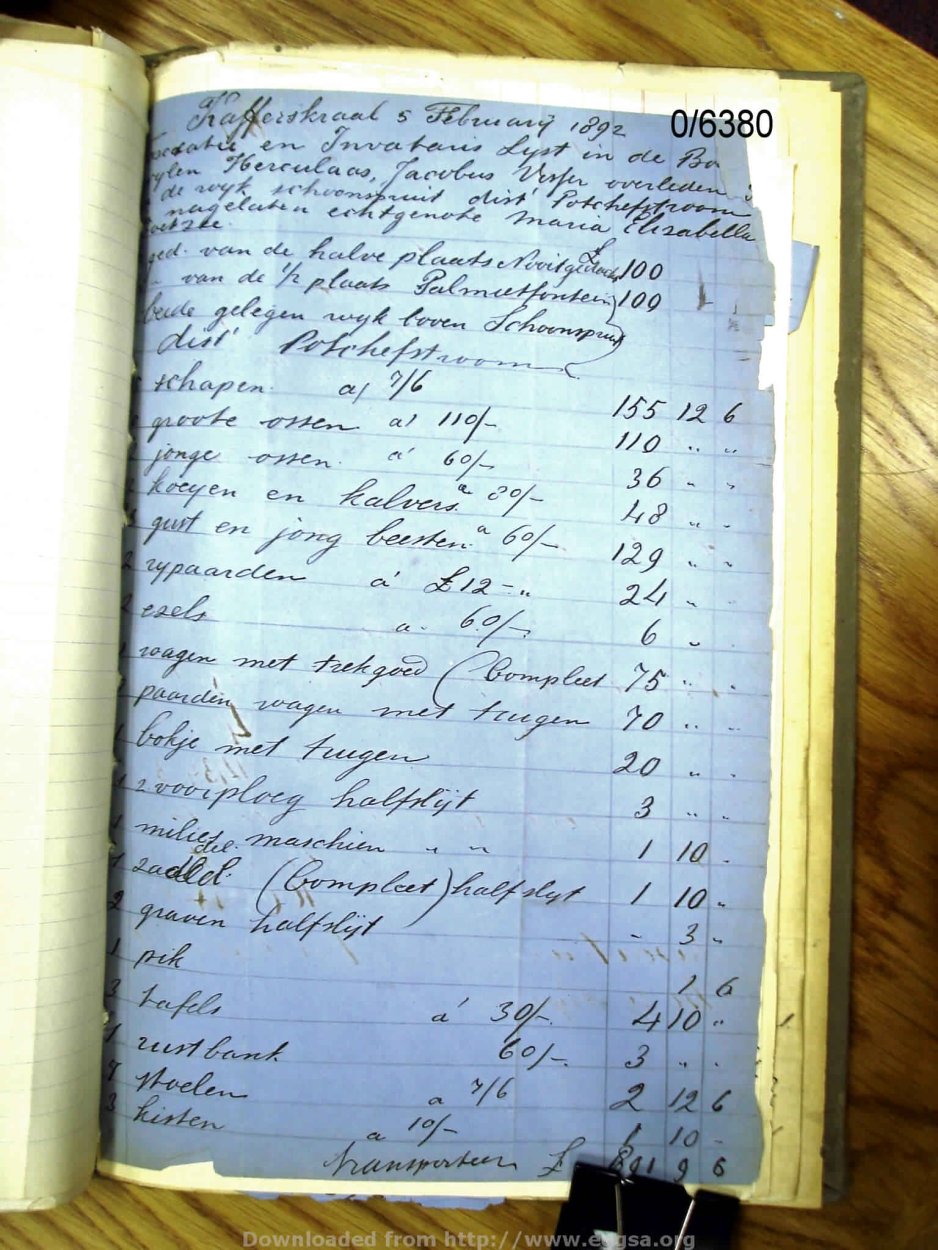 Kafferskraal 5 Februarij 1892
0/6380
en Invataris Lyst in de
Herculaas, Jacobus overleden
de wyk schoonspruit dist Potchefstroom
nagelaten echtgenote Maria Elisabella
ged. van de halve plaats Nooitgedacht £100
" van de ½ plaats Palmietfontein 100 " "
beide gelegen wyk boven Schoonspruit
dist Potchefstroom
schapen. a/ 7/6 155 12 6
groote ossen a' 110/- 110 " "
jonge ossen. a' 60/- 36 " "
koeyen en kalvers. a 80/- 48 " "
gust en jong beesten. a 60/- 129 " "
2 rypaarden a' £12-" 24 " "
2 ezels a. 60/- 6 "
1 wagen met trekgoed (Compleet 75 " "
1 paarden wagen met tuigen 70 " "
1 bokje met tuigen 20 " "
1 2 voor ploeg halfslijt 3 " "
1 milies maschien " " 1 10 -
1 zadel. (Compleet) halfslyt 1 10 "
2 graven halfslijt - 3 "
1 pik 1 6
3 tafels a' 30/- 4 10 "
1 rustbank 60/- 3 " "
7 stoelen a 7/6 2 12 6
3 kisten a 10/- 1 10 -
transporteer £ 9 6
Downloaded from http://www.eggsa.org